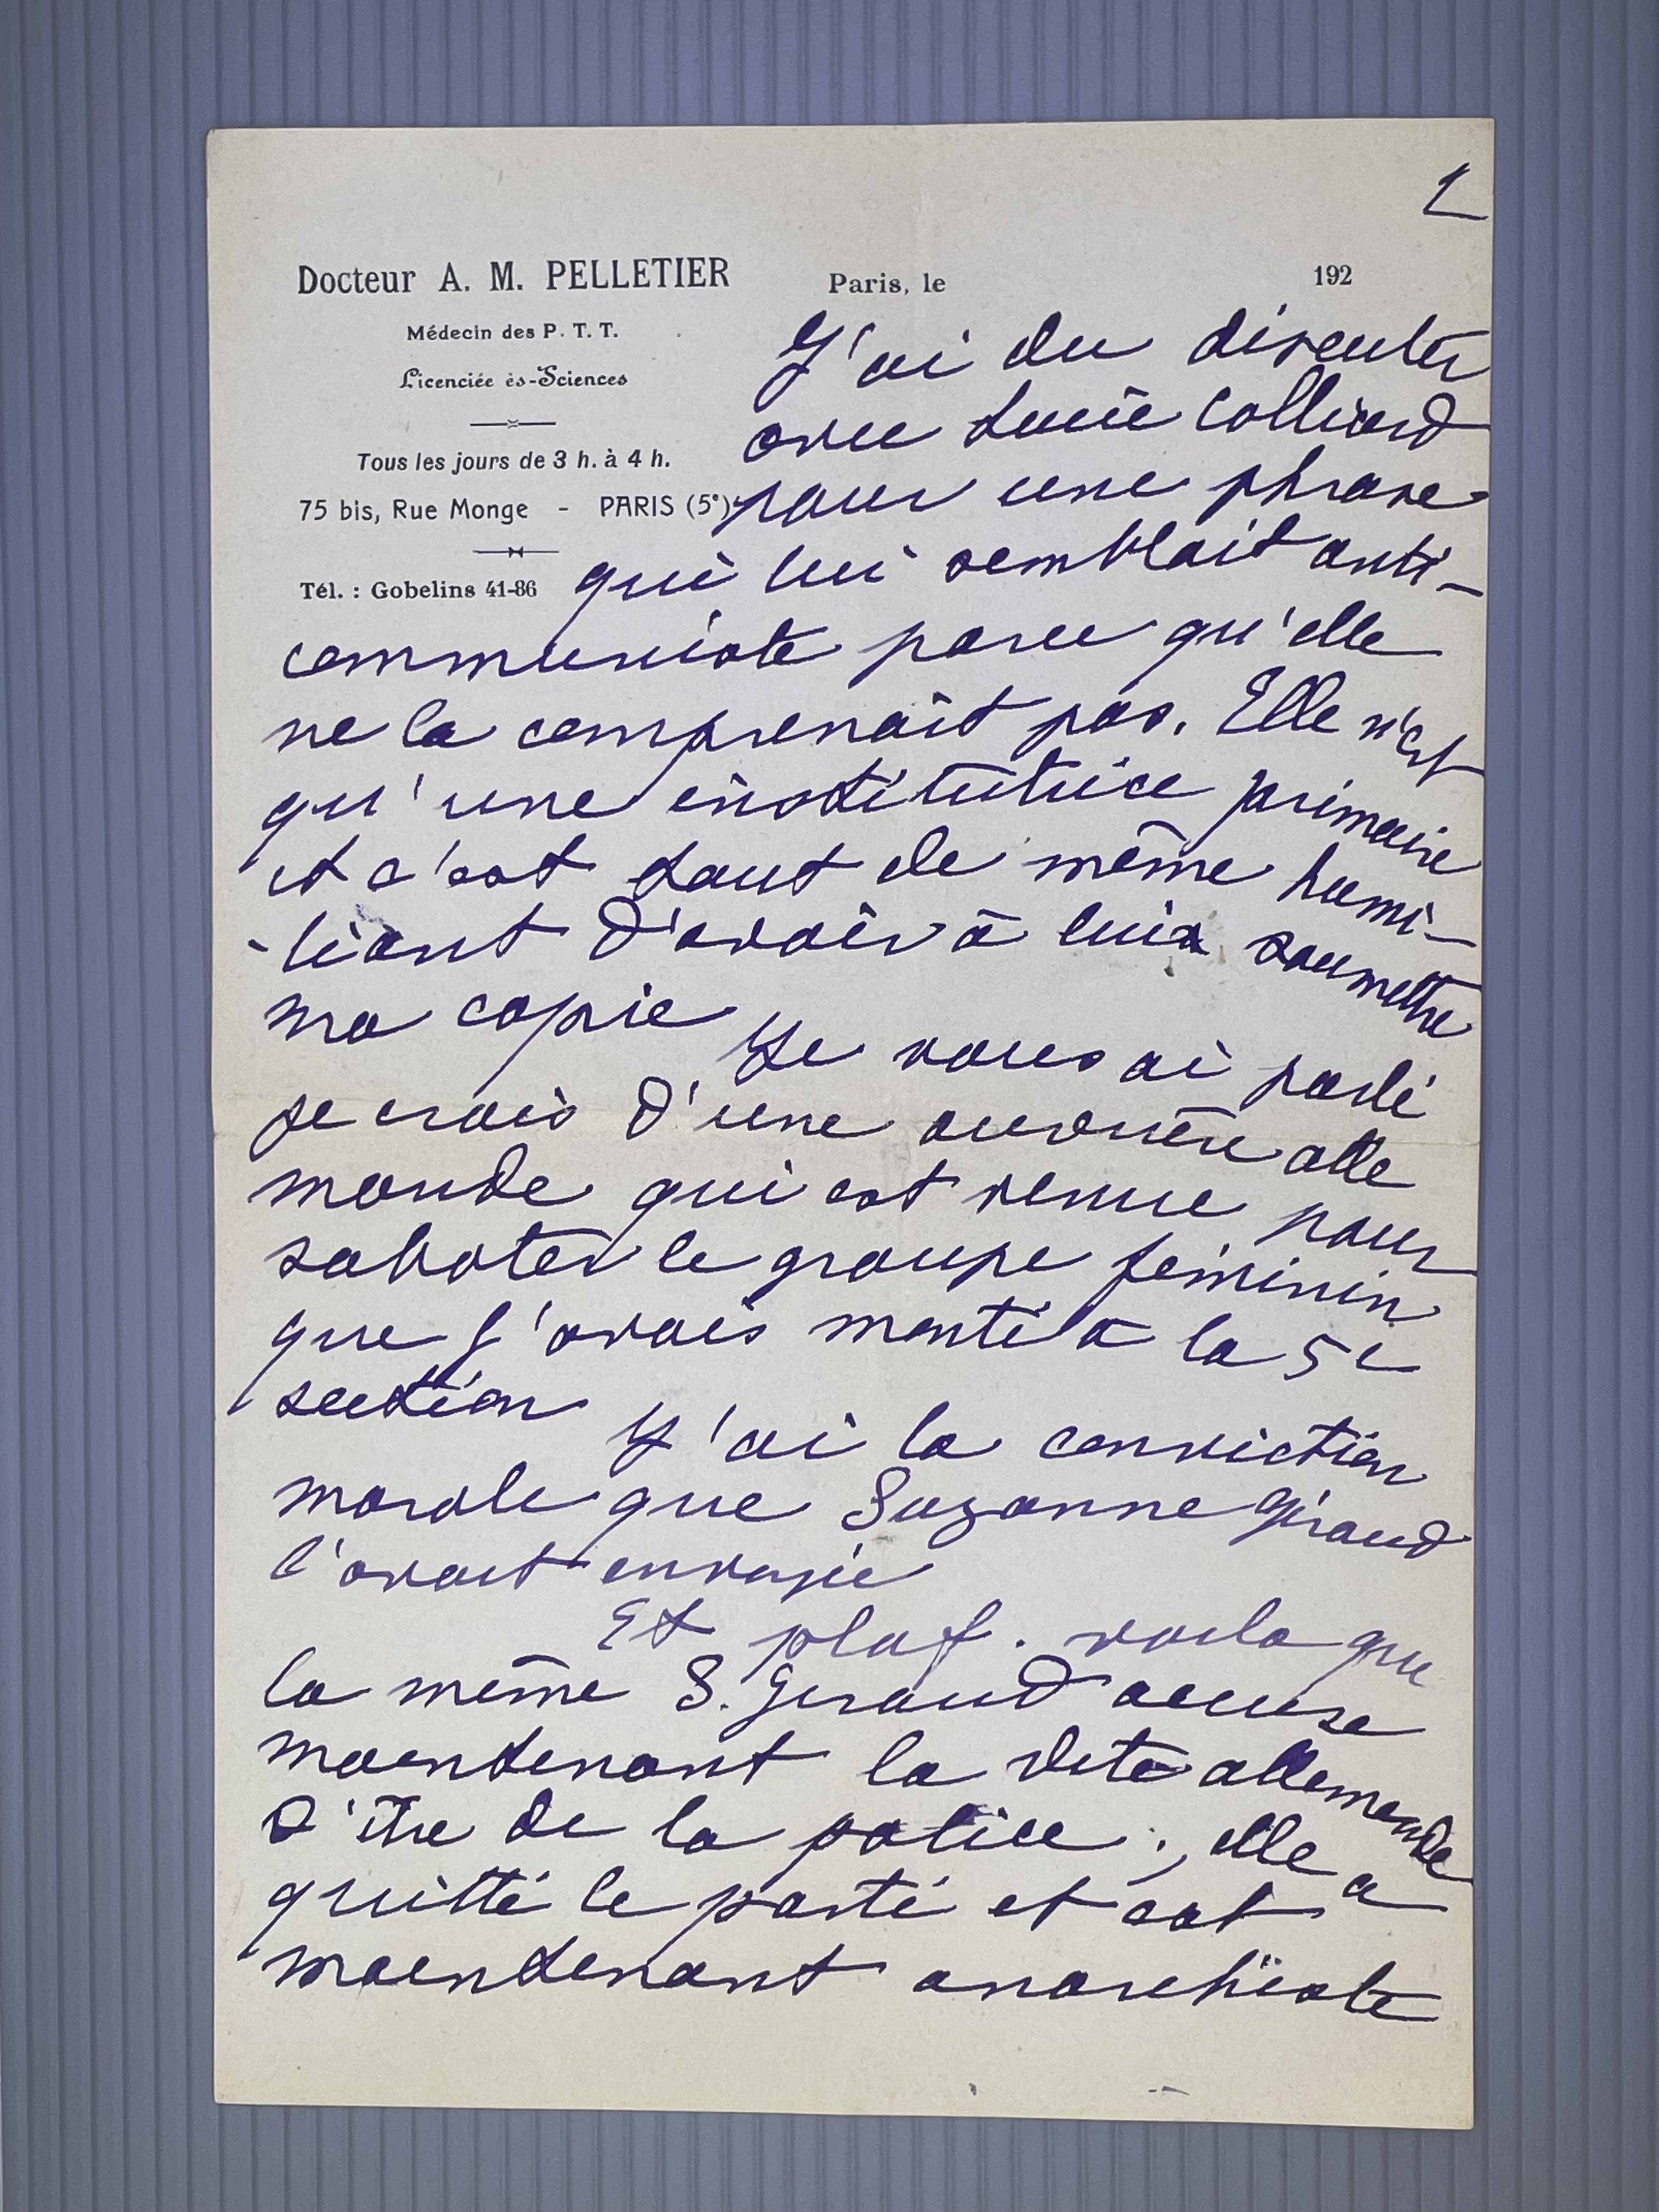 2
Docteur A. M. PELLETIER
Médecin des P. T. T.
Licenciée ès-Sciences
Tous les jours de 3 h. à 4 h.
75 bis, Rue Monge - PARIS (5e)
Tél. : Gobelins 41-86
Paris, le 192
J'ai du discuter
avec Lucie Colliard
pour une phrase
qui lui semblait anti-
communiste parce qu'elle
ne la comprenait pas. Elle n'est
qu'une institutrice primaire
et c'est tout de même humi-
-liant d'avoir à lui soumettre
ma copie
Je vous ai parlé
je crois d'une ouvrière alle
mande qui est venue pour
saboter le groupe féminin
que j'avais monté à la 5e
section
J'ai la conviction
morale que Suzanne Giraud
l'avait envoyée
Et plaf. voila que
la même S. Giraud accuse
maintenant la dite allemande
d'être de la police ; elle a
quitté le parti et est
maintenant anarchiste